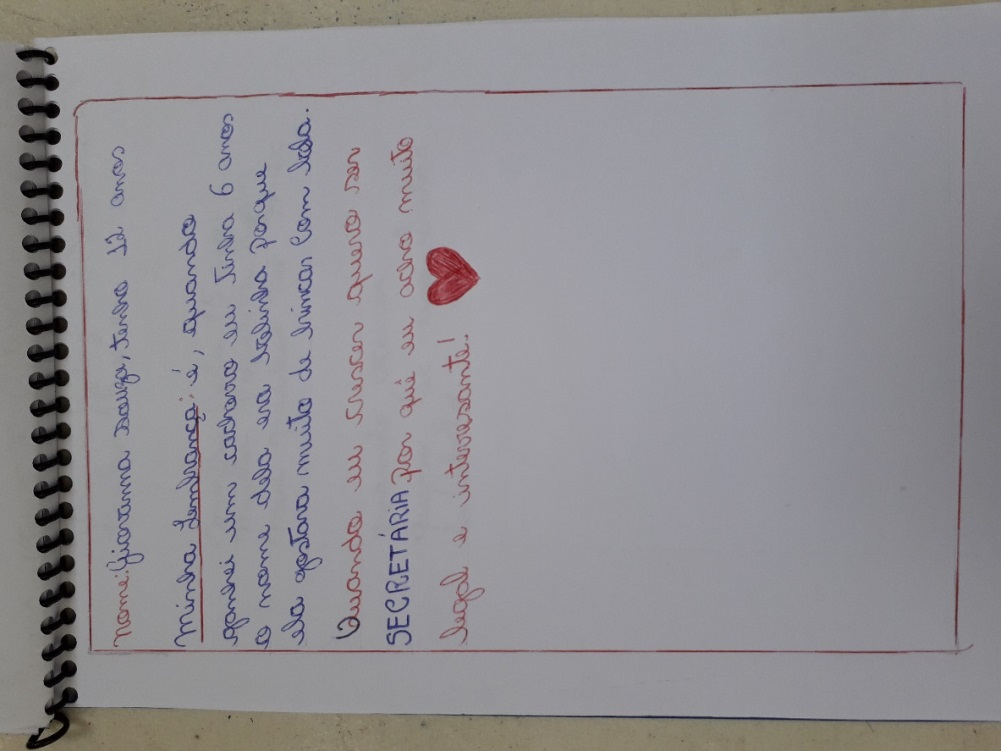 Nome: Giovanna Souza, tenho 12 anos
Minha Lembrança: é, quando
ganhei um cachorro eu tinha 6 anos
o nome dela era bolinha porque
ela gostava muito de brincar com bola.
Quando eu crescer quero ser
SECRETÁRIA por quê eu acho muito
legal e interresante!